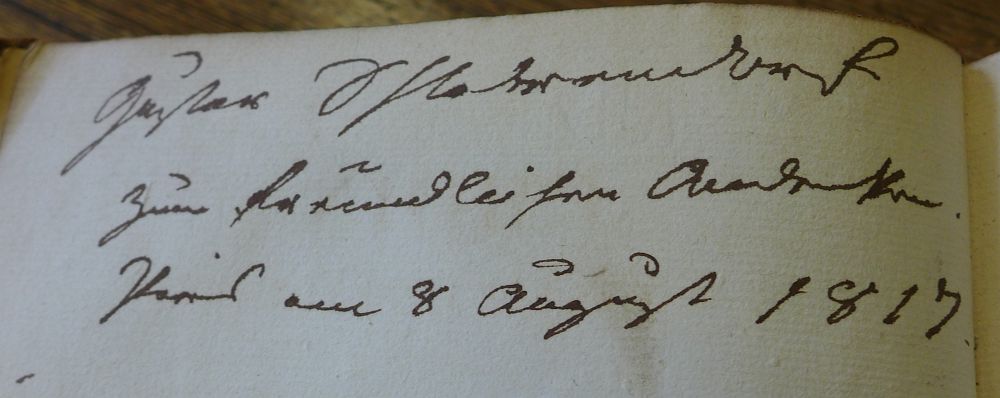 Gustav Schlabrendorf
zum freundlichen Andenken.
Paris am 8 August 1817.